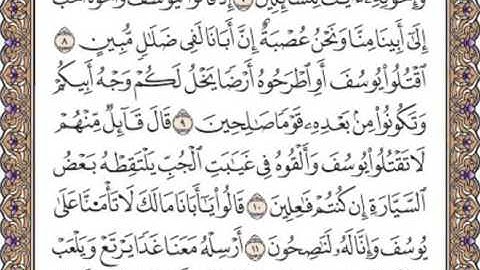 وَإِخْوَتِهِۦٓ ءَايَٰتٞ لِّلسَّآئِلِينَ ٧ إِذۡ قَالُواْ لَيُوسُفُ وَأَخُوهُ أَحَبُّ
إِلَىٰٓ أَبِينَا مِنَّا وَنَحۡنُ عُصۡبَةٌ إِنَّ أَبَانَا لَفِي ضَلَٰلٖ مُّبِينٍ ٨
ٱقۡتُلُواْ يُوسُفَ أَوِ ٱطۡرَحُوهُ أَرۡضٗا يَخۡلُ لَكُمۡ وَجۡهُ أَبِيكُمۡ
وَتَكُونُواْ مِنۢ بَعۡدِهِۦ قَوۡمٗا صَٰلِحِينَ ٩ قَالَ قَآئِلٞ مِّنۡهُمۡ
لَا تَقۡتُلُواْ يُوسُفَ وَأَلۡقُوهُ فِي غَيَٰبَتِ ٱلۡجُبِّ يَلۡتَقِطۡهُ بَعۡضُ
ٱلسَّيَّارَةِ إِن كُنتُمۡ فَٰعِلِينَ ١٠ قَالُواْ يَٰٓأَبَانَا مَا لَكَ لَا تَأۡمَ۬نَّا عَلَىٰ
يُوسُفَ وَإِنَّا لَهُۥ لَنَٰصِحُونَ ١١ أَرۡسِلۡهُ مَعَنَا غَدٗا يَرۡتَعۡ وَيَلۡعَبۡ